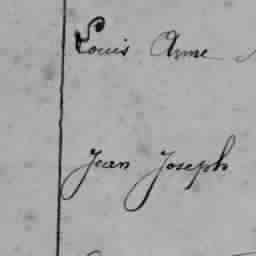 Louis Aime
Jean Joseph